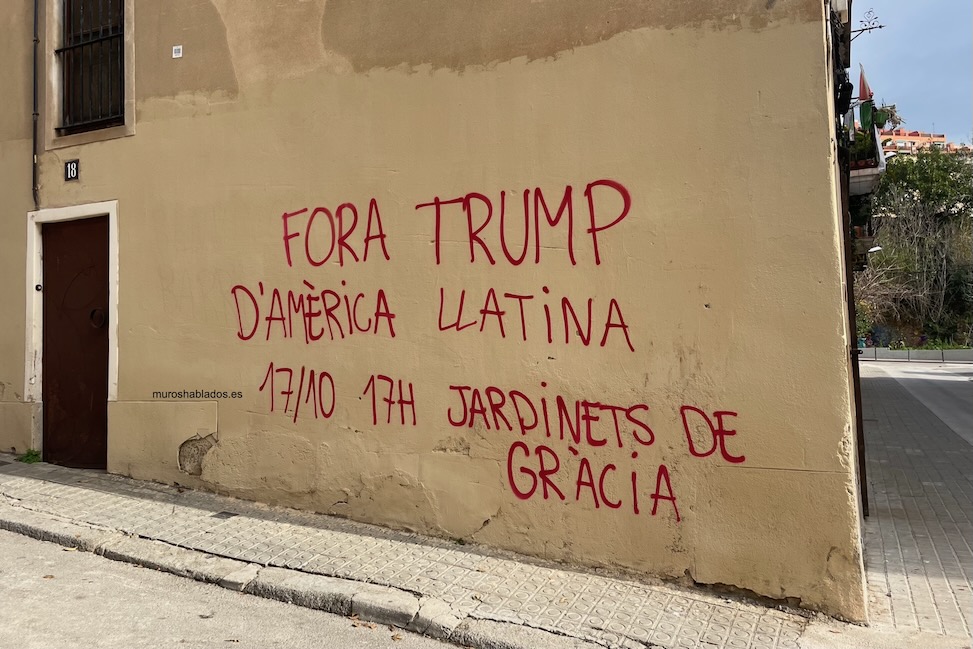 18
FORA TRUMP
D'AMÈRICA LLATINA
17/10 17H JARDINETS DE
GRÀCIA
muroshablados.es